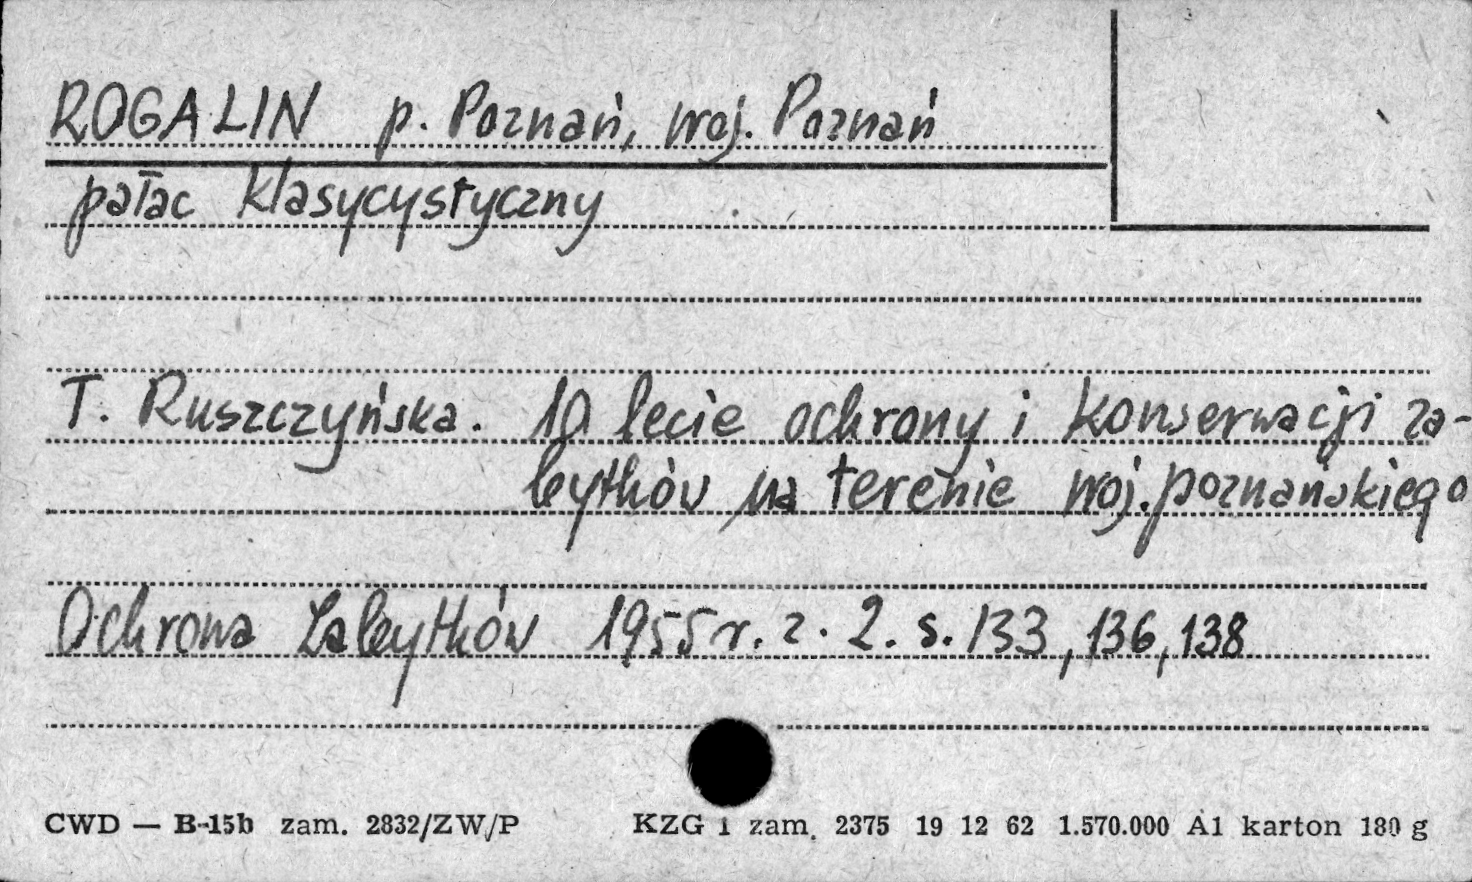 ROGALIN p. Poznań, woj. Poznań
pałac klasycystyczny
T. Ruszczyńska. 10 lecie ochrony i konserwacji za-
bytków na terenie woj. poznańskiego
Ochrona Zabytków 1955 r. z. 2. s. 133, 136, 138
CWD — B-15b zam. 2832/ZW/P KZG 1 zam. 2375 19 12 62 1.570.000 A1 karton 180 g